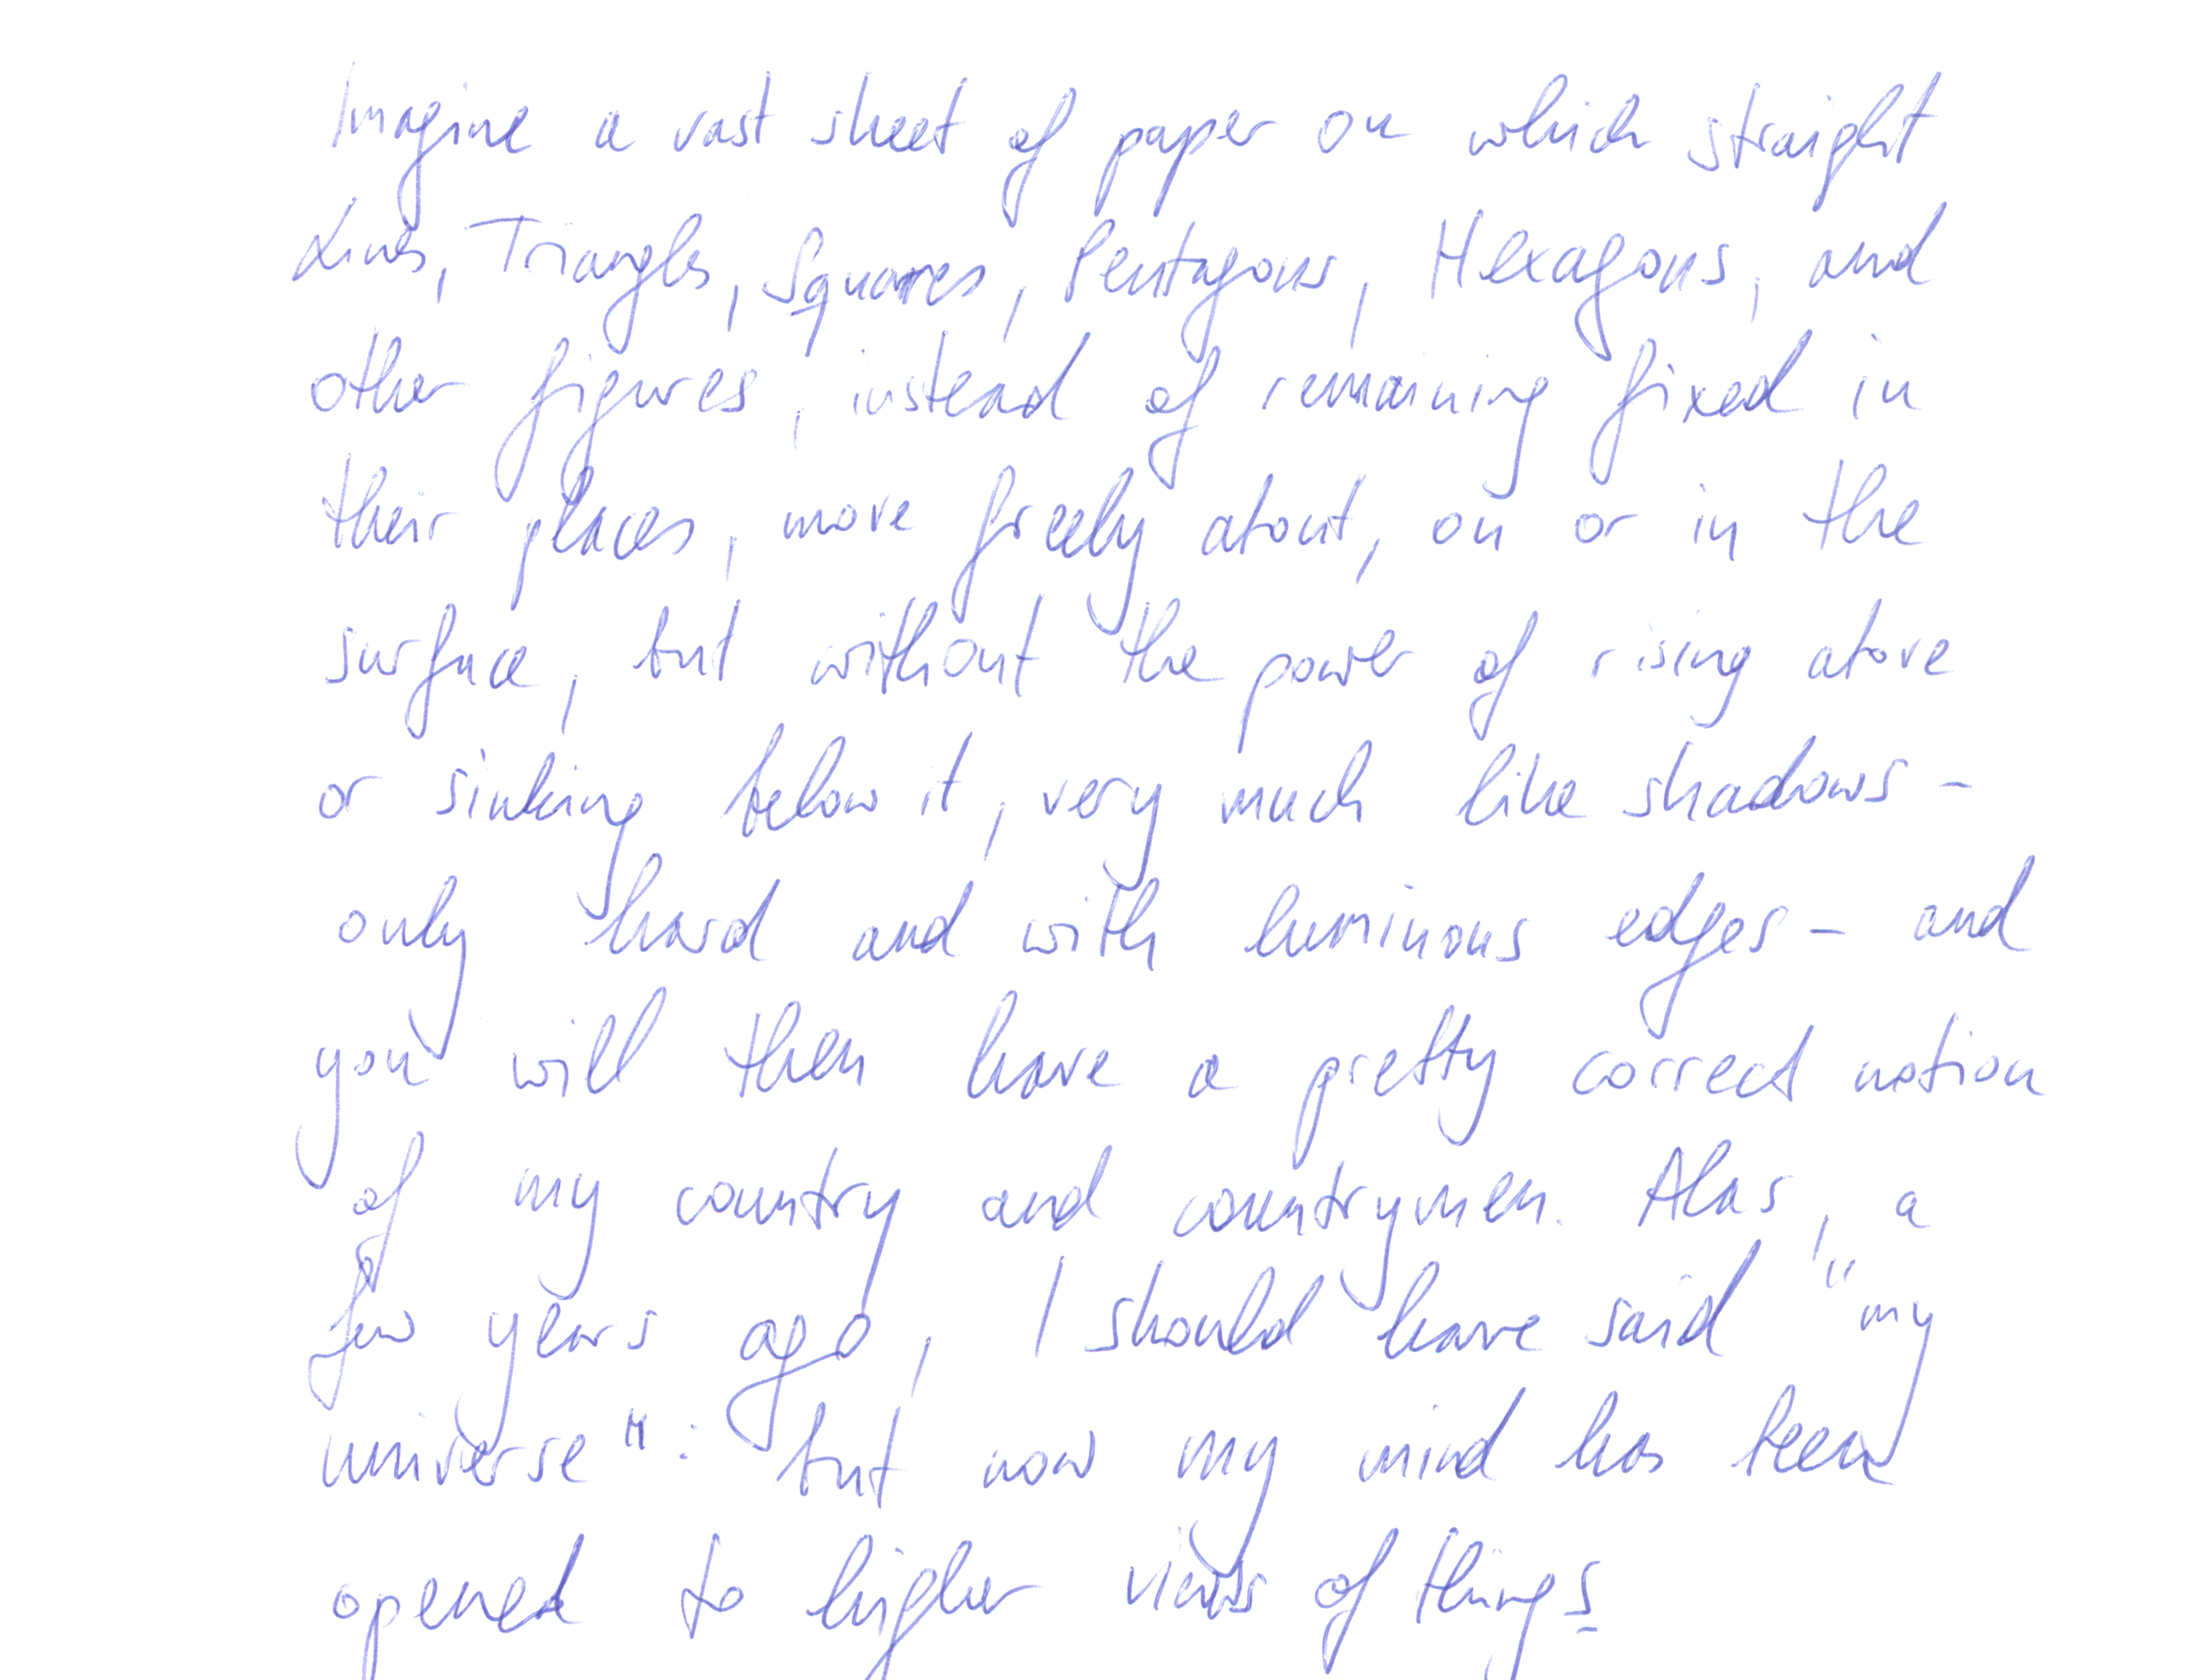 Imagine a vast sheet of paper on which straight
Lines, Triangles, Squares, Pentagons, Hexagons, and
other figures, instead of remaining fixed in
their places, move freely about, on or in the
surface, but without the power of rising above
or sinking below it, very much like shadows -
only hard and with luminous edges - and
you will then have a pretty correct notion
of my country and countrymen. Alas, a
few years ago, I should have said "my
universe": but now my mind has been
opened to higher views of things